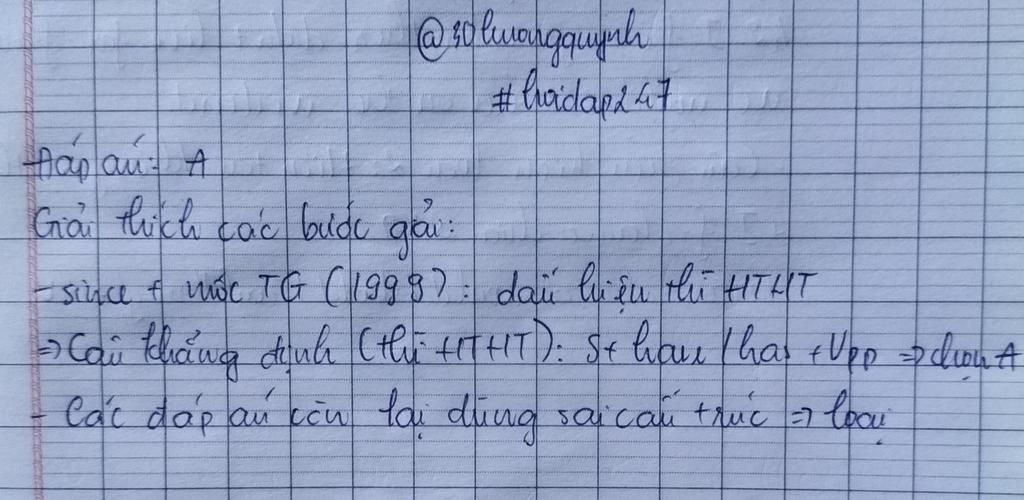 @30huongquynh
#hoidap247
Đáp án: A
Giải thích các bước giải:
- since + mốc TG (1999): dấu hiệu thì HTHT
=> Câu khẳng định (thì HTHT): S + have / has + Vpp => chọn A
- Các đáp án còn lại dùng sai cấu trúc => loại